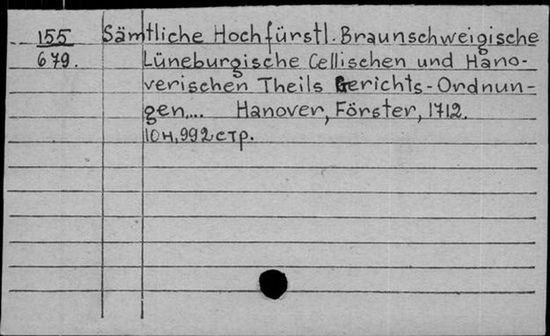 155 Sämtliche Hochfürstl. Braunschweigische
679. Lüneburgische Cellischen und Hano-
verischen Theils Gerichts-Ordnun-
gen... Hanover, Förster, 1712.
10н, 992 стр.